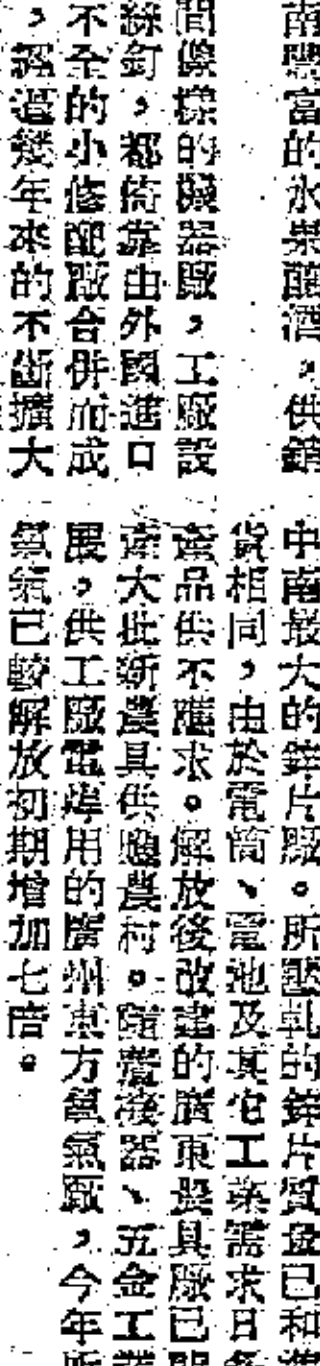 南豐富的水果釀酒，供銷
間像樣的機器廠，工廠設
絲釘，都倚靠由外國進口
不全的小修配廠合併而成
，經過幾年來的不斷擴大
中南最大的鋅片廠。所壓軋的鋅片質量已和進
貨相同，由於電筒、電池及其它工業需求日
產品供不應求。解放後改建的廣東農具廠已開
產大批新農具供應農村。隨着機器、五金工業
展，供工廠電焊用的廣州東方氧氣廠，今年所
氧氣已較解放初期增加七倍。